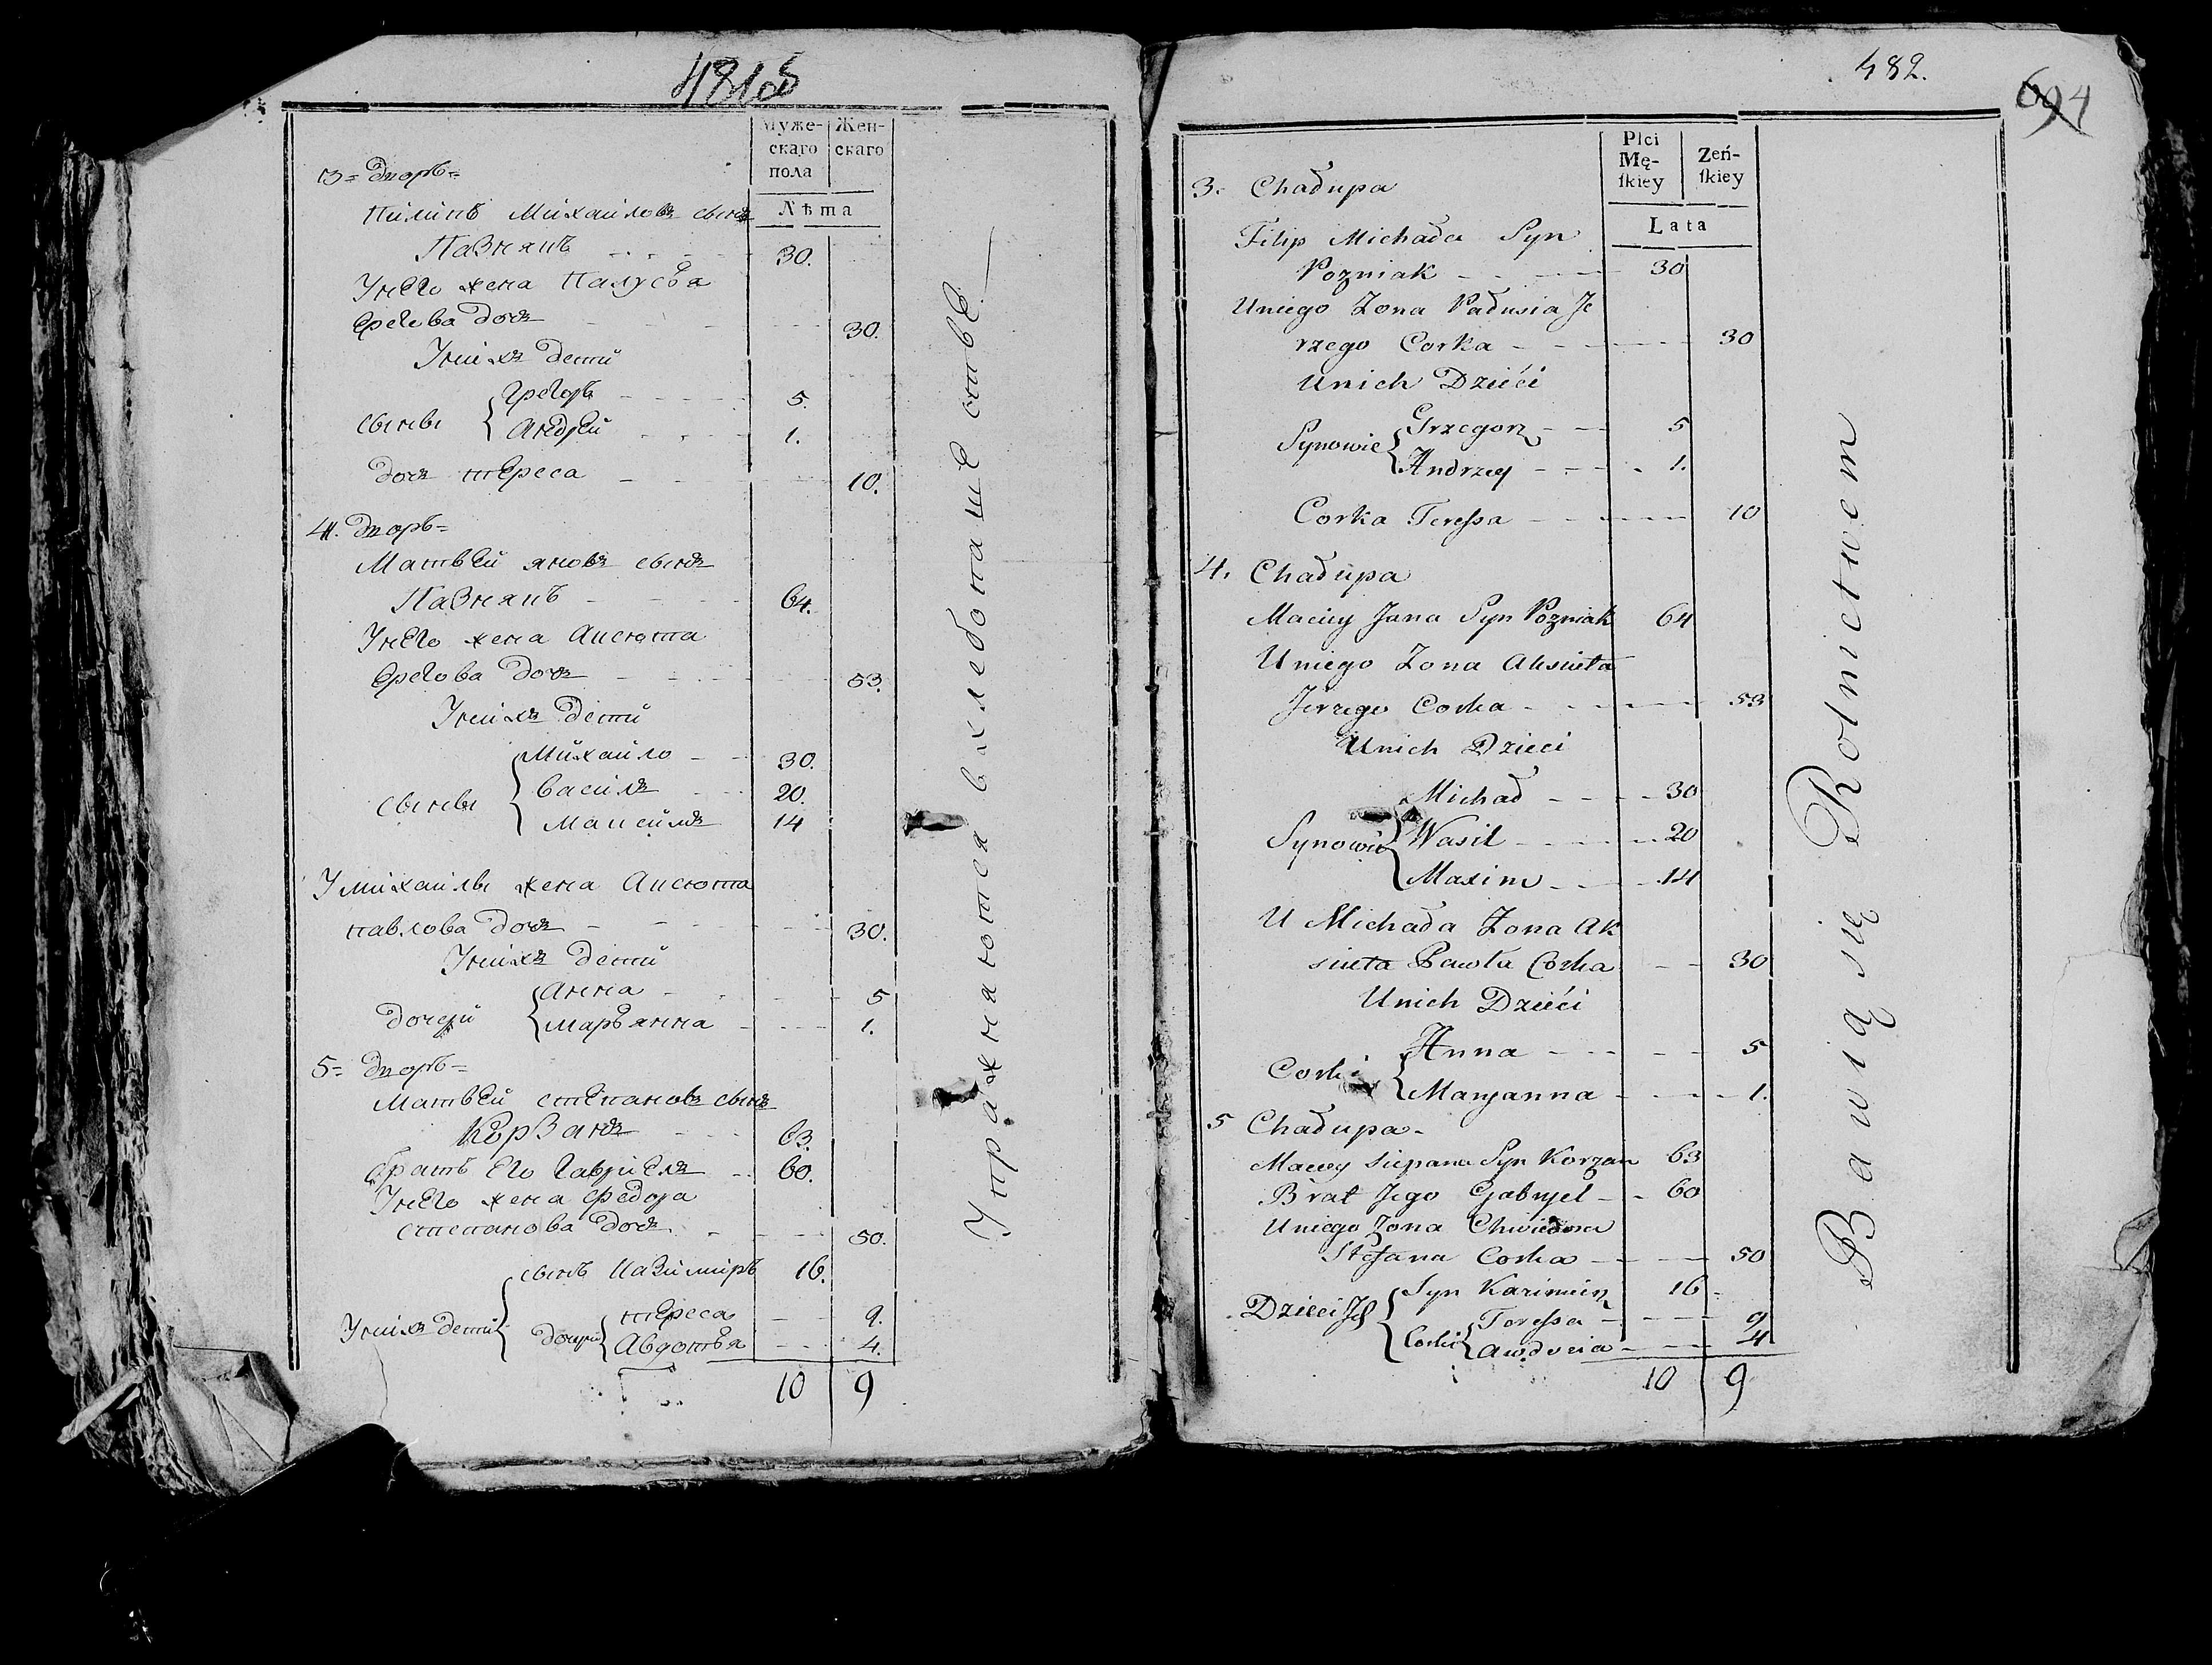 Муже-
скаго
пола
Жен-
скаго
Лѣта
3= дворъ=
Пилипъ Михаиловъ сынъ
Пазнякъ - - - 30.
Унего жена Палусѣя
дочь - - - 30.
Унихъ дети
сыны { Грегоръ - - - 5.
Андрей - - - 1.
дочь тереса - - - 10.
4. дворъ=
Матвей яновъ сынъ
Пазнякъ - - - 64.
Унего жена Аксюта
дочь - - - 53.
Унихъ дети
сыны { Михайло - - 30.
Василь - - 20.
Максимъ 14
У михаилы жена Аксюта
павлова дочь - - - 30.
Унихъ дети
дочери { Анна - - - 5
Марьянна - - - 1.
5= дворъ=
Матвей степановъ сынъ
Корзанъ - - 63.
братъ его Гавриель - - 60.
Унего жена Федора
степанова дочь - - - 50.
Унихъ дети { сынъ Казимиръ 16.
дочери { тереса - - 9.
Авдотья - - 4.
10 9
Упражняются в хлебопашесотвѣ.
482.
694
Plci
Mę-
skiey
Żeń-
skiey
Lata
3. Chałupa
Filip Michała Syn
Pozniak - - - 30
Uniego Zona Pałusia Je
rzego Corka - - - 30
Unich Dzieći
Synowie { Grzegorz - - 5
Andrzey - - - 1.
Corka Teressa - - - 10
4. Chałupa
Maciey Jana Syn Pozniak 64
Uniego Zona Aksiuta
Jerzego Corka - - - 53
Unich Dzieci
Synowie { Michał - - - 30
Wasil - - - 20
Maxim - - - 14
U Michała Zona Ak
siuta Pawła Corka - - 30
Unich Dzieći
Corki { Anna - - - 5
Maryanna - - - 1.
5 Chałupa -
Maciey Siepana Syn Korzan 63
Brat Jego Gabryel - - 60
Uniego Zona Chwiedora
Stefana Corka - - - 50
Dzieci Ich { Syn Kazimierz 16
Corki { Teressa - - - 9
Awdocia - - - 4
10 9
Bawią się Rolnictwem